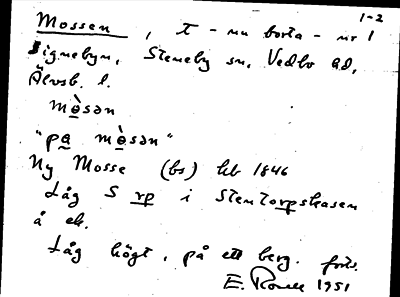 1-2
Mossen, t - nu borta - nr 1
Signebyn, Steneby sn, Vedbo hd,
Älvsb. l.
mòsən
"pa mòsən"
Ny Mosse (bs) hb 1846
Låg S rp i Stentorpshagen
å ek.
Låg högt, på ett berg. forts.
E. 1951